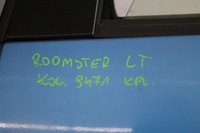 ROOMSTER LT
KOL. 9471 KPL.